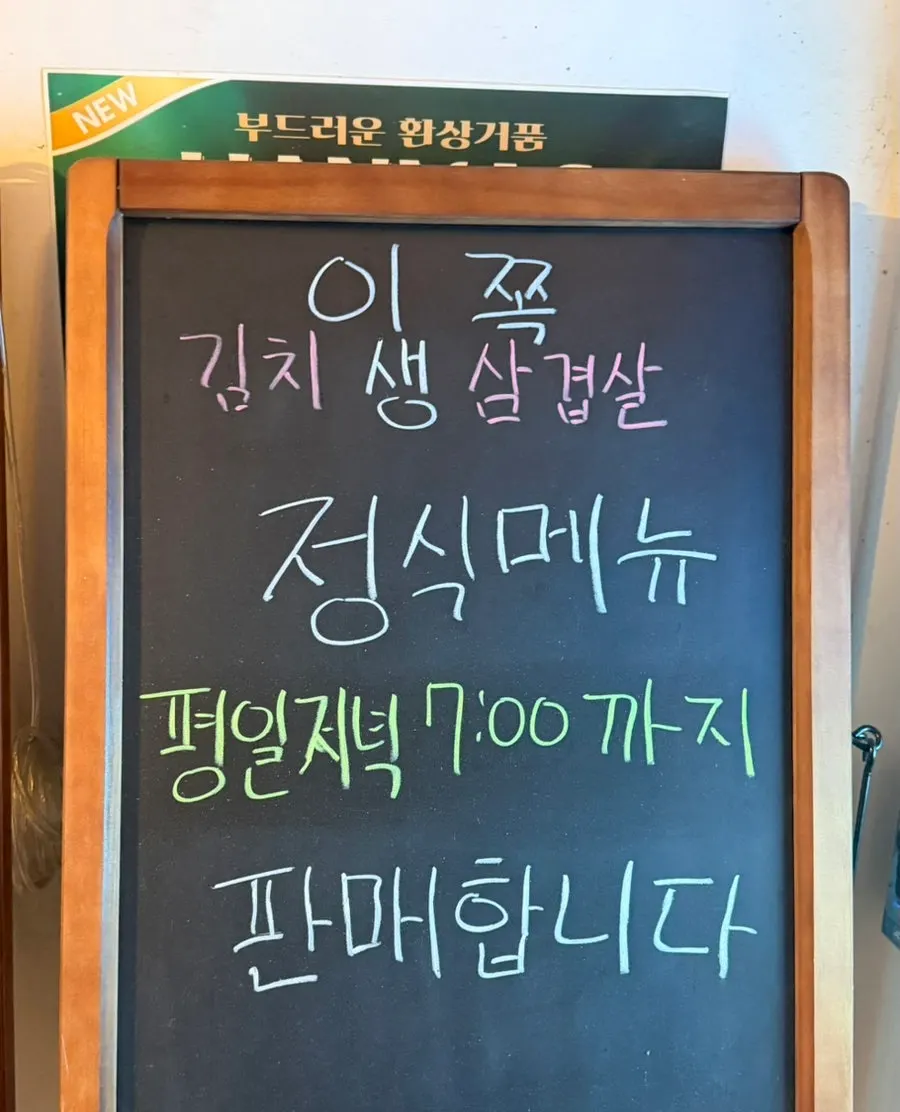 NEW
부드러운 환상거품
이 쪽
김치 생 삼겹살
정식메뉴
평일저녁 7:00 까지
판매합니다